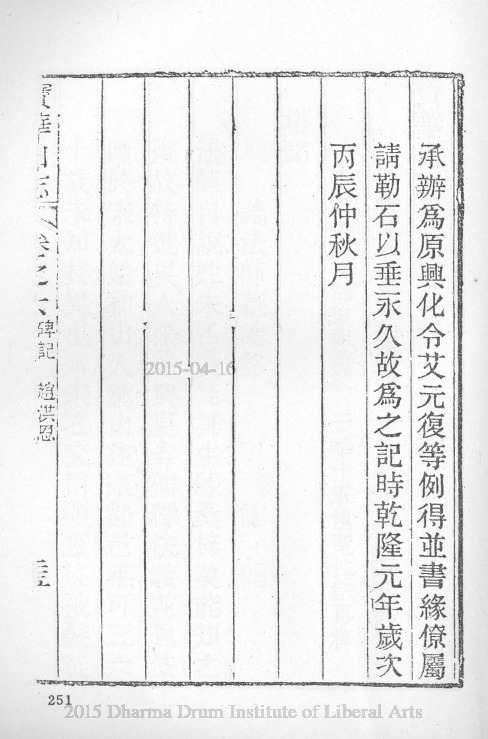 承辦爲原興化令艾元復等例得並書緣僚屬
請勒石以垂永久故爲之記時乾隆元年歲次
丙辰仲秋月
寶華山志 卷之六 碑記 趙洪恩
2015-04-16
251
2015 Dharma Drum Institute of Liberal Arts